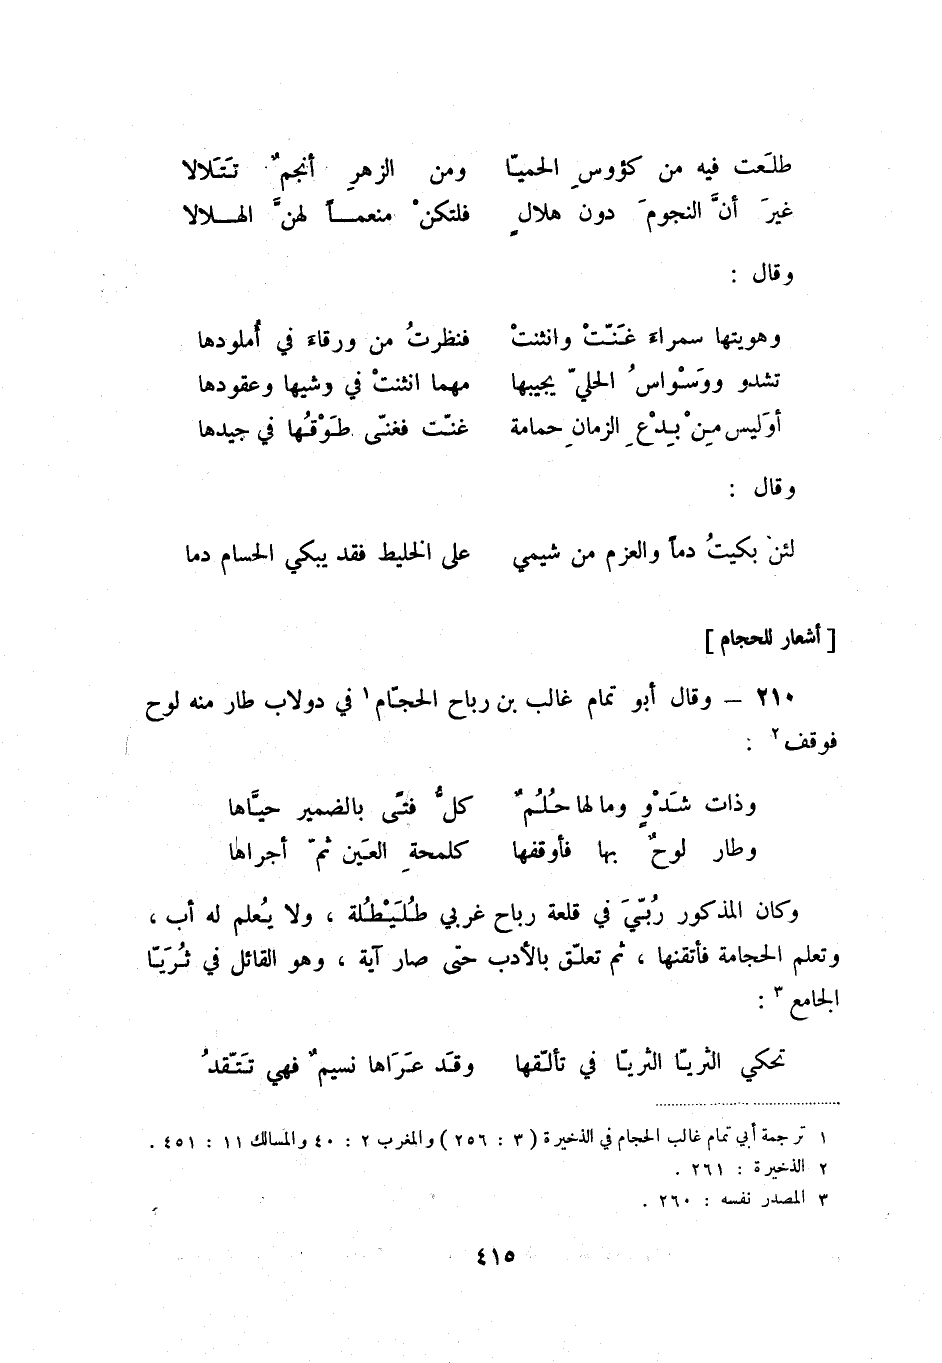 طلَعت فيه من كؤوسِ الحميّا ومن الزهرِ أنجمٌ تَتَلالا
غيرَ أنَّ النجومَ دون هلالٍ فلتكنْ منعمـاً لهنَّ الهـلالا
وقال :
وهويتها سمراءَ غَنَّتْ وانثنتْ فنظرتُ من ورقاءَ في أُملودها
تشدو ووَسْواسُ الحليّ يجيبها مهما انثنتْ في وشيها وعقودها
أوَليس مِنْ بِدْعِ الزمانِ حمامة غنّت فغنّى طَوْقُها في جيدها
وقال :
لئن بكيتُ دماً والعزم من شيمي على الخليط فقد يبكي الحسام دما
[ أشعار للحجام ]
٢١٠ – وقال أبو تمام غالب بن رباح الحجّام ١ في دولاب طار منه لوح
فوقف ٢ :
وذات شَدْوٍ وما لها حُلُمٌ كلُّ فتًى بالضمير حيَّاها
وطار لوحٌ بها فأوقفها كلمحةِ العَين ثمّ أجراها
وكان المذكور رُبّيَ في قلعة رباح غربي طُلَيْطُلة ، ولا يُعلم له أب ،
وتعلم الحجامة فأتقنها ، ثم تعلّق بالأدب حتّى صار آية ، وهو القائل في ثُرَيّا
الجامع ٣ :
تحكي الثريّا الثريّا في تألّقها وقَد عَرَاها نسيمٌ فهي تَتّقدُ
١ ترجمة أبي تمام غالب الحجام في الذخيرة ( ٣ : ٢٥٦ ) والمغرب ٢ : ٤٠ والمسالك ١١ : ٤٥١ .
٢ الذخيرة : ٢٦١ .
٣ المصدر نفسه : ٢٦٠ .
٤١٥